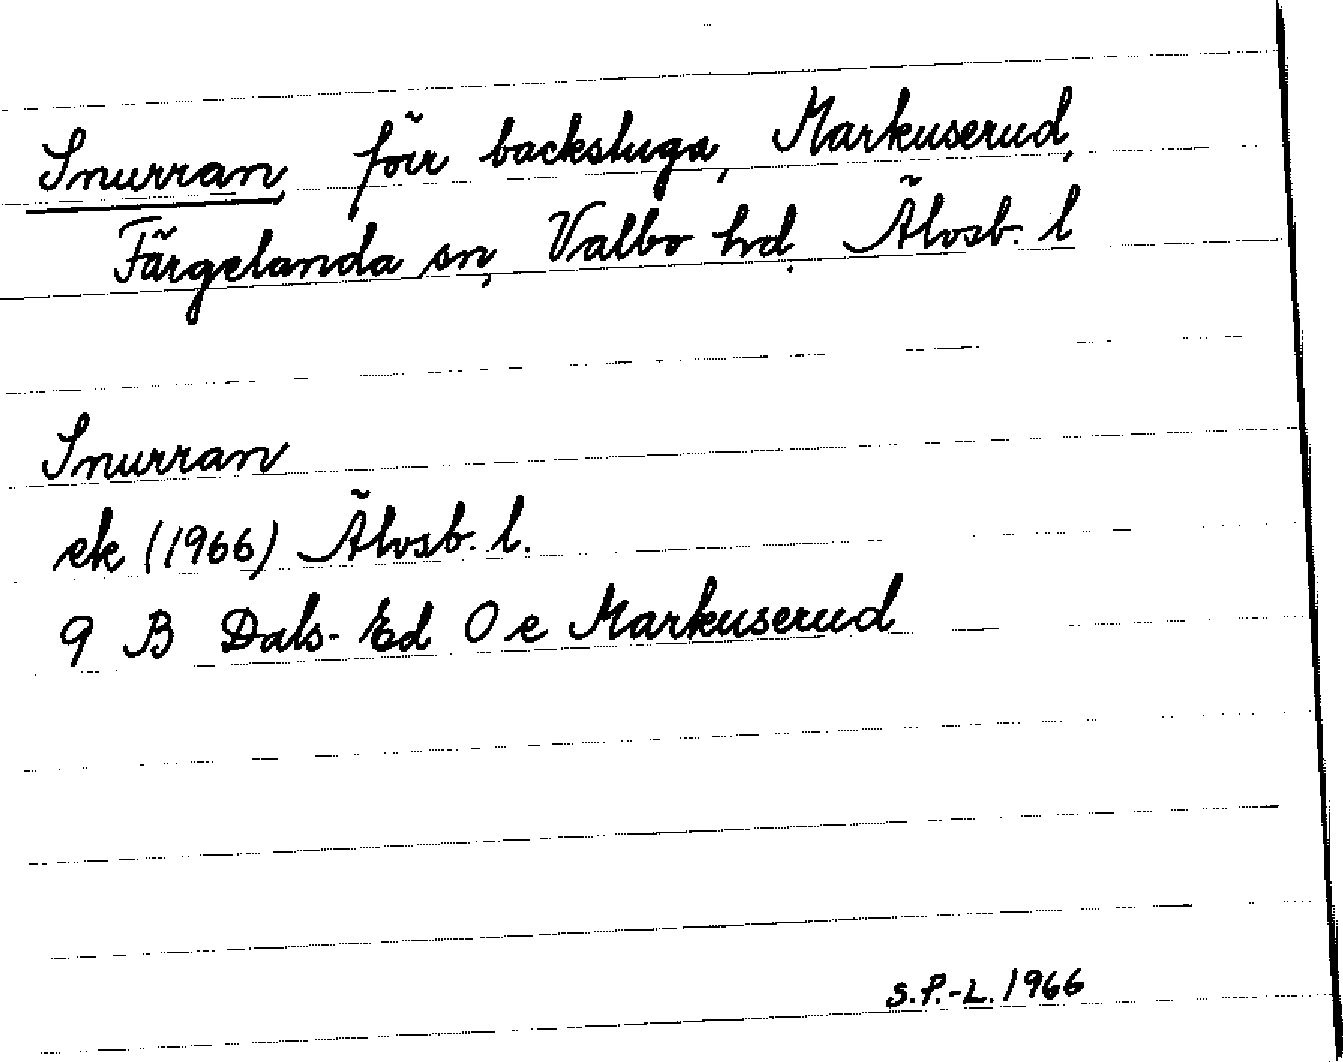 Snurran, förr backstuga, Markuserud,
Färgelanda sn, Valbo hd, Älvsb. l
Snurran
ek (1966) Älvsb. l.
9 B Dals-Ed 0 e Markuserud
S.P.-L. 1966